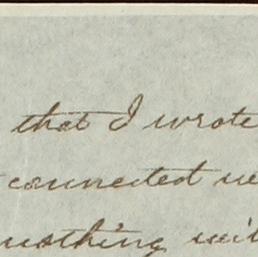 that I wrote
connected
nothing